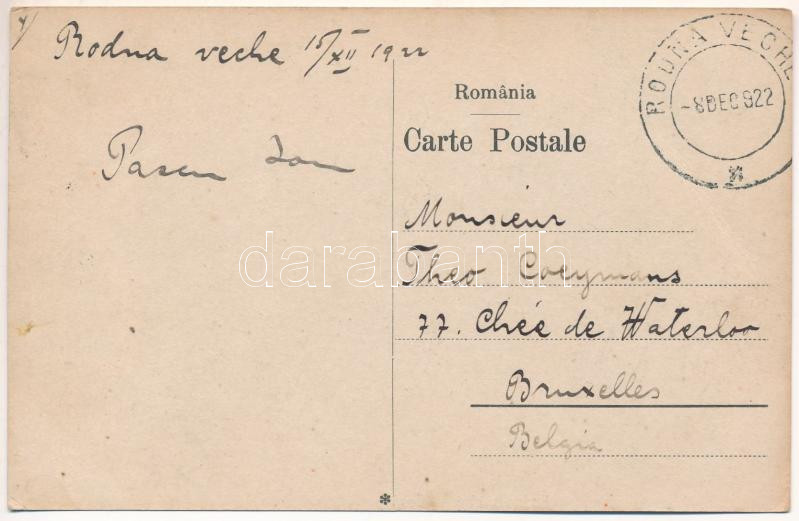 Rodna veche 15/XII 1922
Pascu Ion
România
Carte Postale
RODNA VECHE
-8DEC922
Monsieur
Theo Coeymans
77. Chée de Waterloo
Bruxelles
Belgia
darabanth